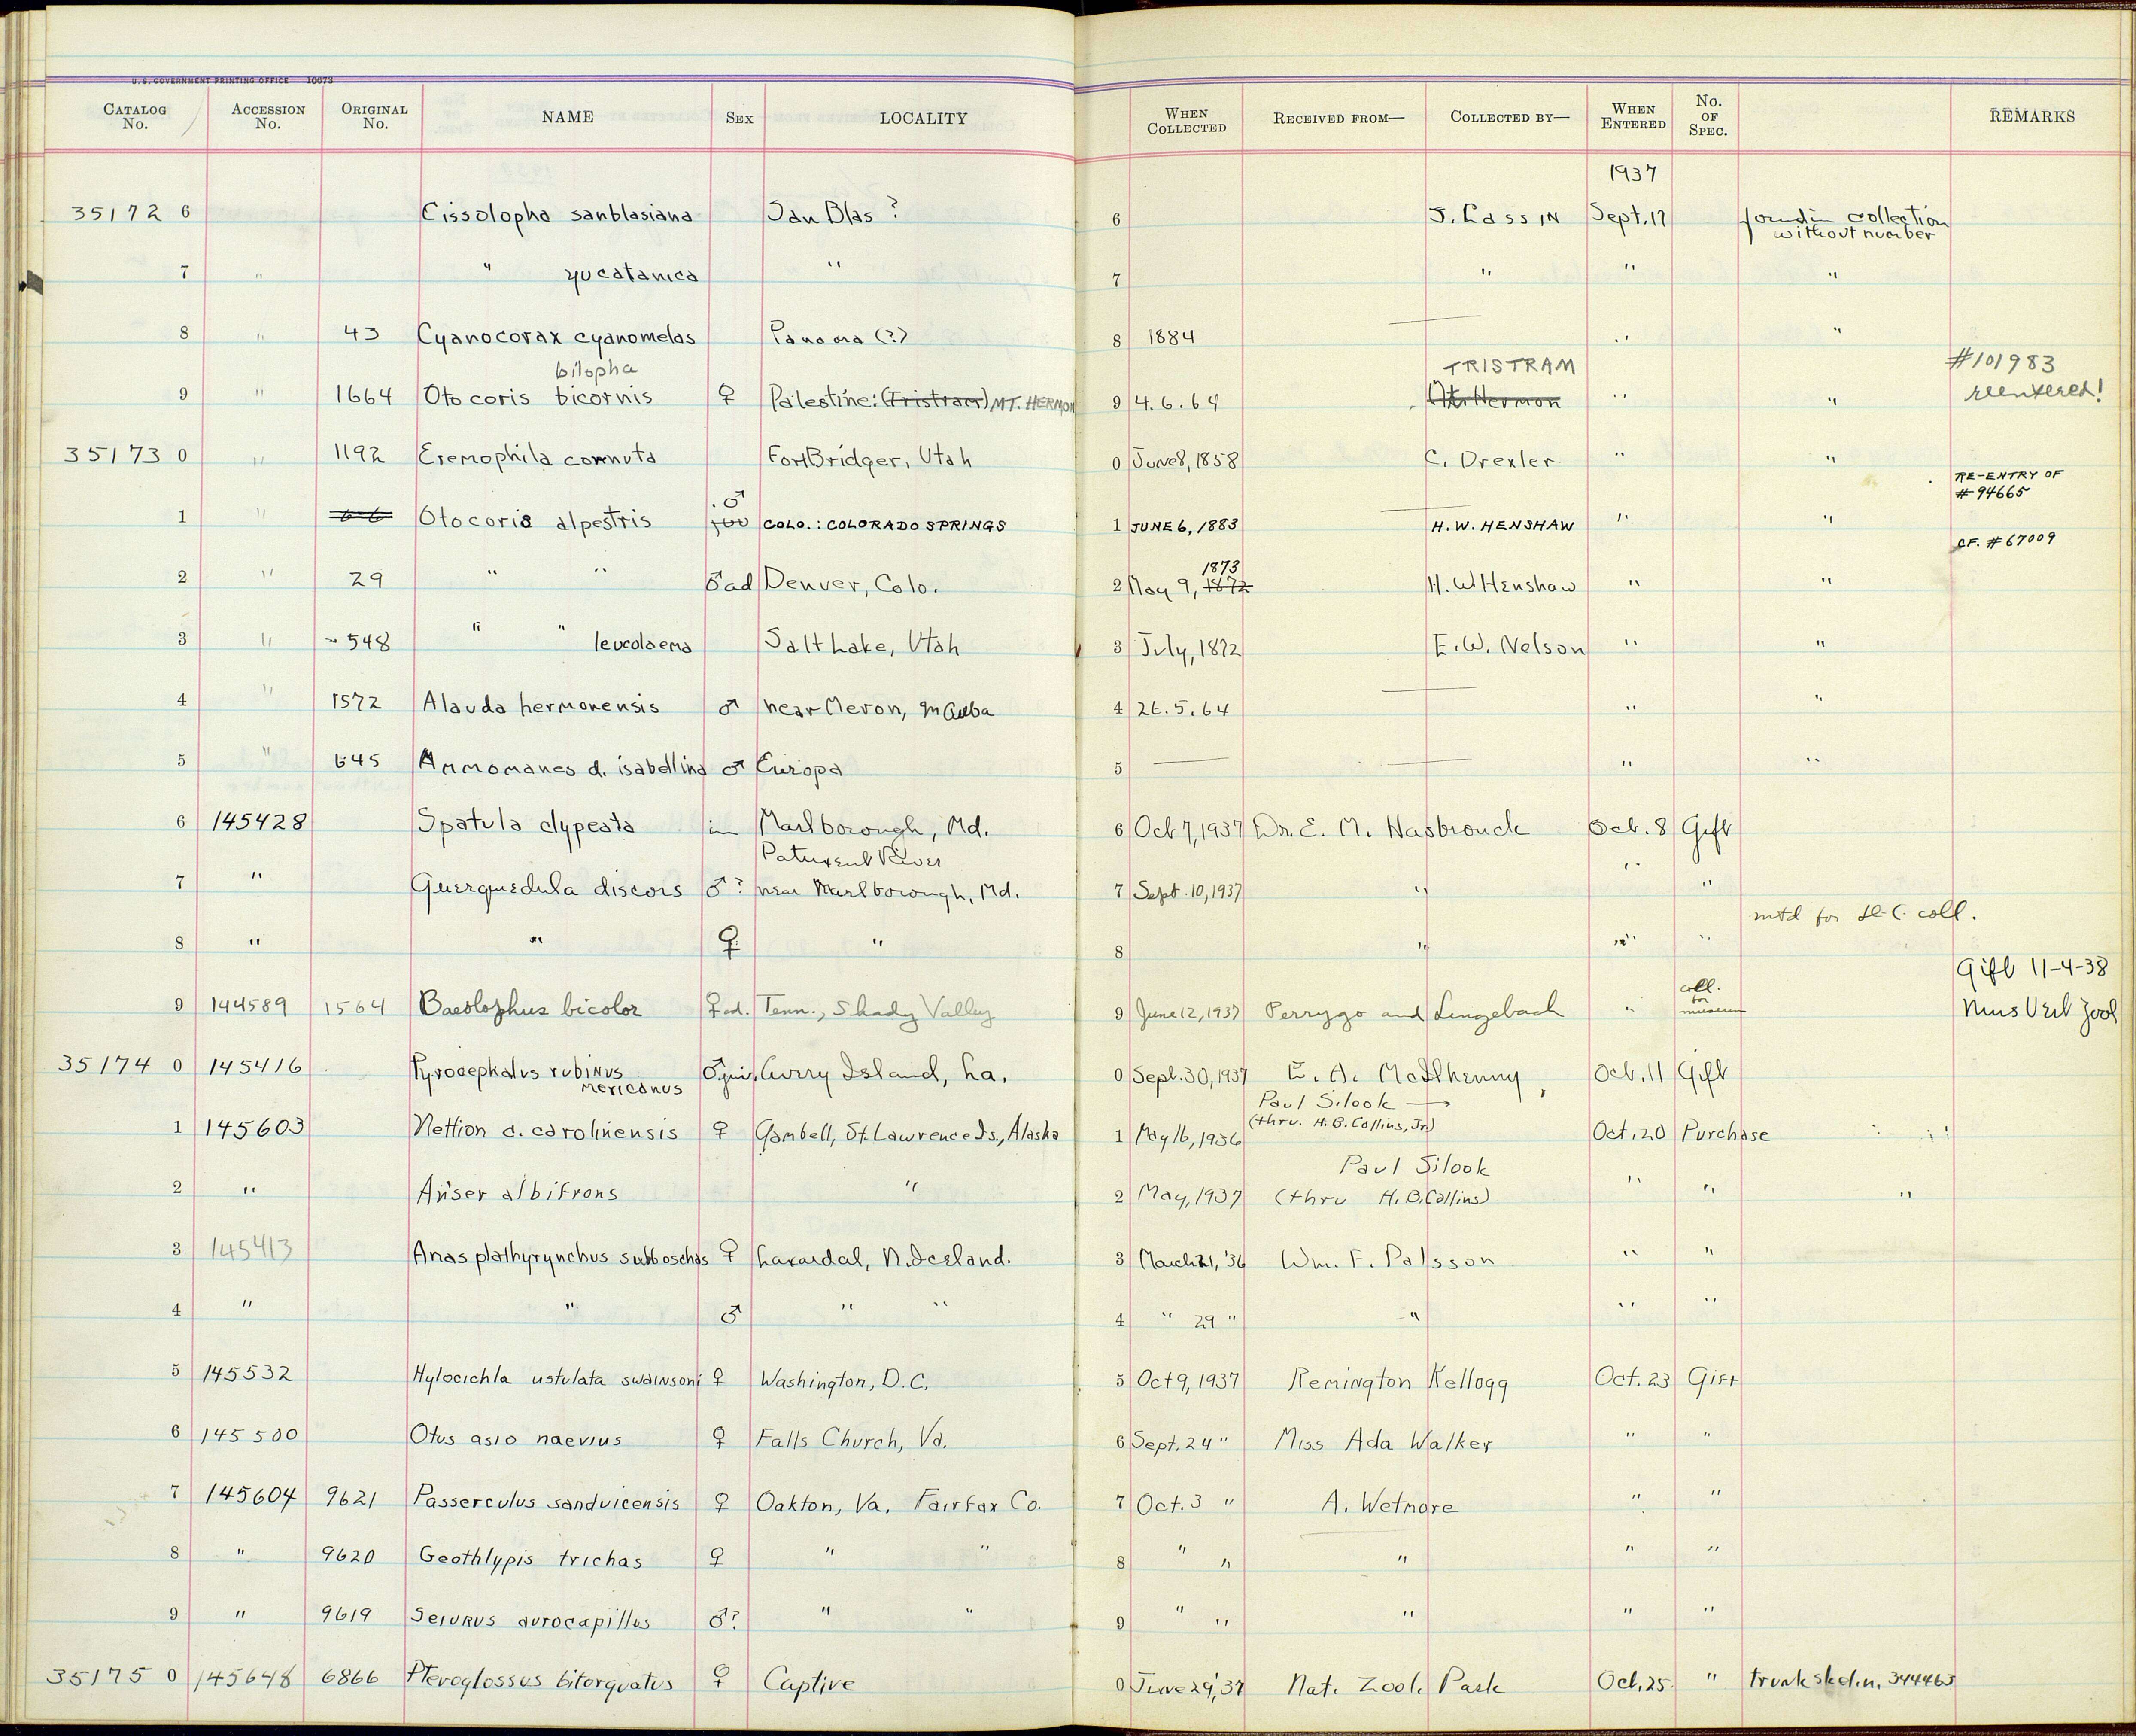 U. S. GOVERNMENT PRINTING OFFICE 10673
CATALOG No. ACCESSION No. ORIGINAL No. NAME SEX LOCALITY WHEN COLLECTED RECEIVED FROM— COLLECTED BY— WHEN ENTERED No. OF SPEC. REMARKS
1937
35172 6 Cissolopha sanblasiana San Blas ? 6 J. Cassin Sept. 17 found in collection
without number
7 " " yucatanica " 7 " " "
8 " 43 Cyanocorax cyanomelas Panama (?) 8 1884 — " "
bilopha TRISTRAM #101983
9 " 1664 Otocoris bicornis ♀ Palestine: (Tristram) MT. HERMON 9 4.6.64 Mt. Hermon " " reentered!
35173 0 " 1192 Eremophila cornuta Fort Bridger, Utah 0 June 8, 1858 C. Drexler " "
♂ RE-ENTRY OF
# 94665
1 " 66 Otocoris alpestris COLO.: COLORADO SPRINGS 1 JUNE 6, 1883 H. W. HENSHAW " "
1873 CF. # 67009
2 " 29 " " ♂ ad Denver, Colo. 2 May 9, 1872 H. W Henshaw " "
3 " 548 " " leucolaema Salt Lake, Utah 3 July, 1872 E. W. Nelson " "
4 " 1572 Alauda hermonensis ♂ near Meron, 4 26.5.64 — " "
5 " 645 Ammomanes d. isabellina ♂ Europa 5 — — " "
6 145428 Spatula clypeata im Marlborough, Md. 6 Oct 7, 1937 Dr. E. M. Hasbrouck Oct. 8 Gift
Patuxent River
7 " Querquedula discors ♂? near Marlborough, Md. 7 Sept. 10, 1937 " " "
mtd for D.C. coll.
8 " " ♀ " 8 " " "
Gift 11-4-38
coll. for museum
9 144589 1564 Baeolophus bicolor ♀ ad. Tenn., Shady Valley 9 June 12, 1937 Perrygo and Lingebach " Mus Vert Zool
35174 0 145416 Pyrocephalus rubinus ♂ juv. Avery Island, La. 0 Sept. 30, 1937 E. A. McIlhenny Oct. 11 Gift
mexicanus
Paul Silook →
1 145603 Nettion c. carolinensis ♀ Gambell, St. Lawrence Is., Alaska 1 May 16, 1936 (thru. H. B. Collins, Jr) Oct. 20 Purchase
Paul Silook
2 " Anser albifrons " 2 May, 1937 (thru H. B. Collins) " " "
3 145413 Anas plathyrynchus subboschas ♀ Laxardal, N. Iceland. 3 March 21, '36 Wm. F. Palsson " "
4 " " ♂ " " 4 " 29 " " " "
5 145532 Hylocichla ustulata swainsoni ♀ Washington, D.C. 5 Oct 9, 1937 Remington Kellogg Oct. 23 Gift
6 145500 Otus asio naevius ♀ Falls Church, Va. 6 Sept. 24 " Miss Ada Walker " "
7 145604 9621 Passerculus sandvicensis ♀ Oakton, Va. Fairfax Co. 7 Oct. 3 " A. Wetmore " "
8 " 9620 Geothlypis trichas ♀ " " 8 " " " " "
9 " 9619 Seiurus aurocapillus ♂? " " 9 " " " " "
35175 0 145648 6866 Pteroglossus bitorquatus ♀ Captive 0 June 29, '37 Nat. Zool. Park Oct. 25 " trunk skel. n. 344463